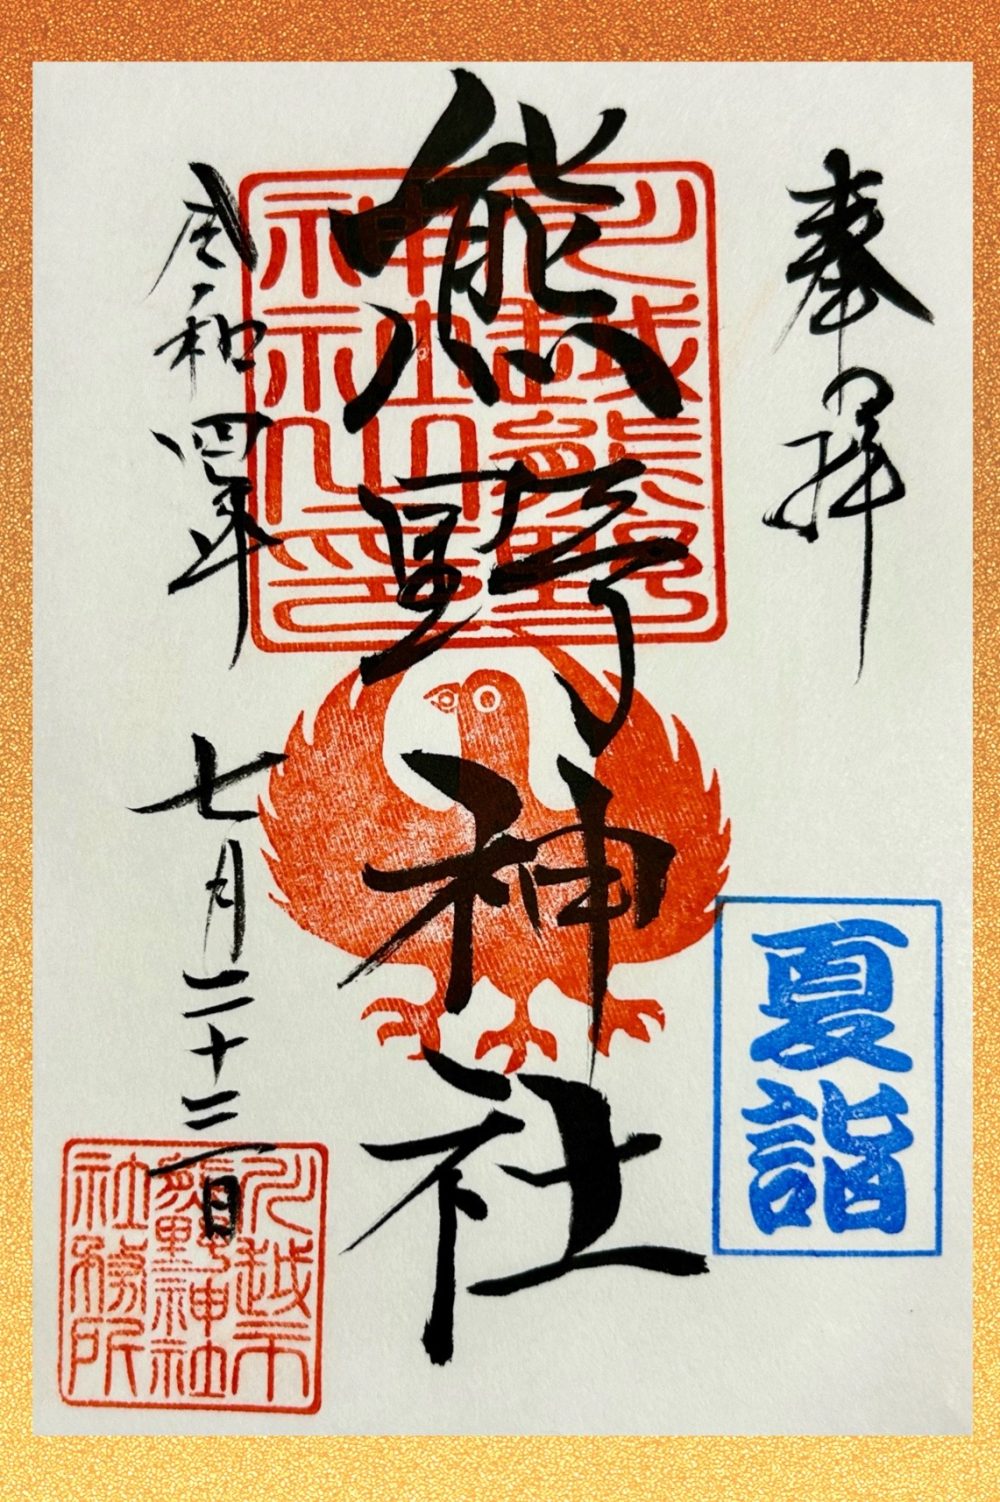 奉拝
川越熊野
神社之印
熊野神社
令和四年 七月二十三日
夏詣
川越市
熊野神社
社務所